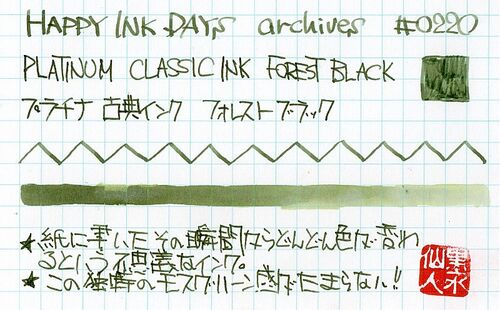 HAPPY INK DAYS archives #0220
PLATINUM CLASSIC INK FOREST BLACK
プラチナ 古典インク フォレストブラック
★紙に書いたその瞬間からどんどん色が変わ
るという不思議なインク。
★この独特のモスグリーン感がたまらない!!
仙人